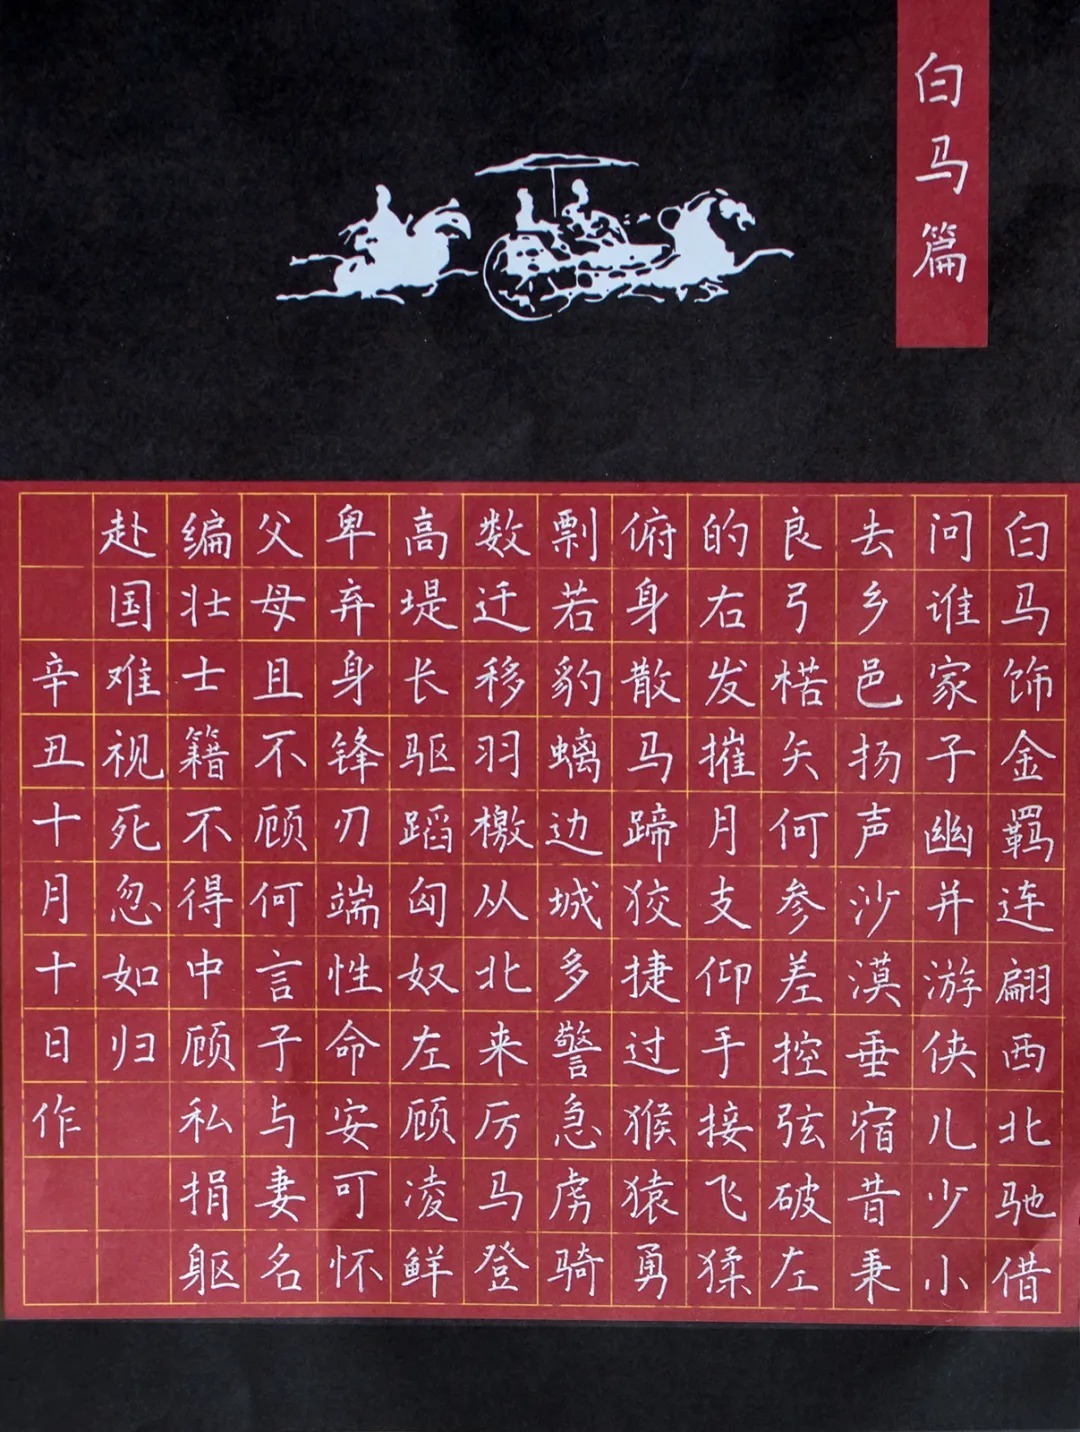 白马篇
白马饰金羁连翩西北驰借
问谁家子幽并游侠儿少小
去乡邑扬声沙漠垂宿昔秉
良弓楛矢何参差控弦破左
的右发摧月支仰手接飞猱
俯身散马蹄狡捷过猴猿勇
剽若豹螭边城多警急虏骑
数迁移羽檄从北来厉马登
高堤长驱蹈匈奴左顾凌鲜
卑弃身锋刃端性命安可怀
父母且不顾何言子与妻名
编壮士籍不得中顾私捐躯
赴国难视死忽如归
辛丑十月十日作